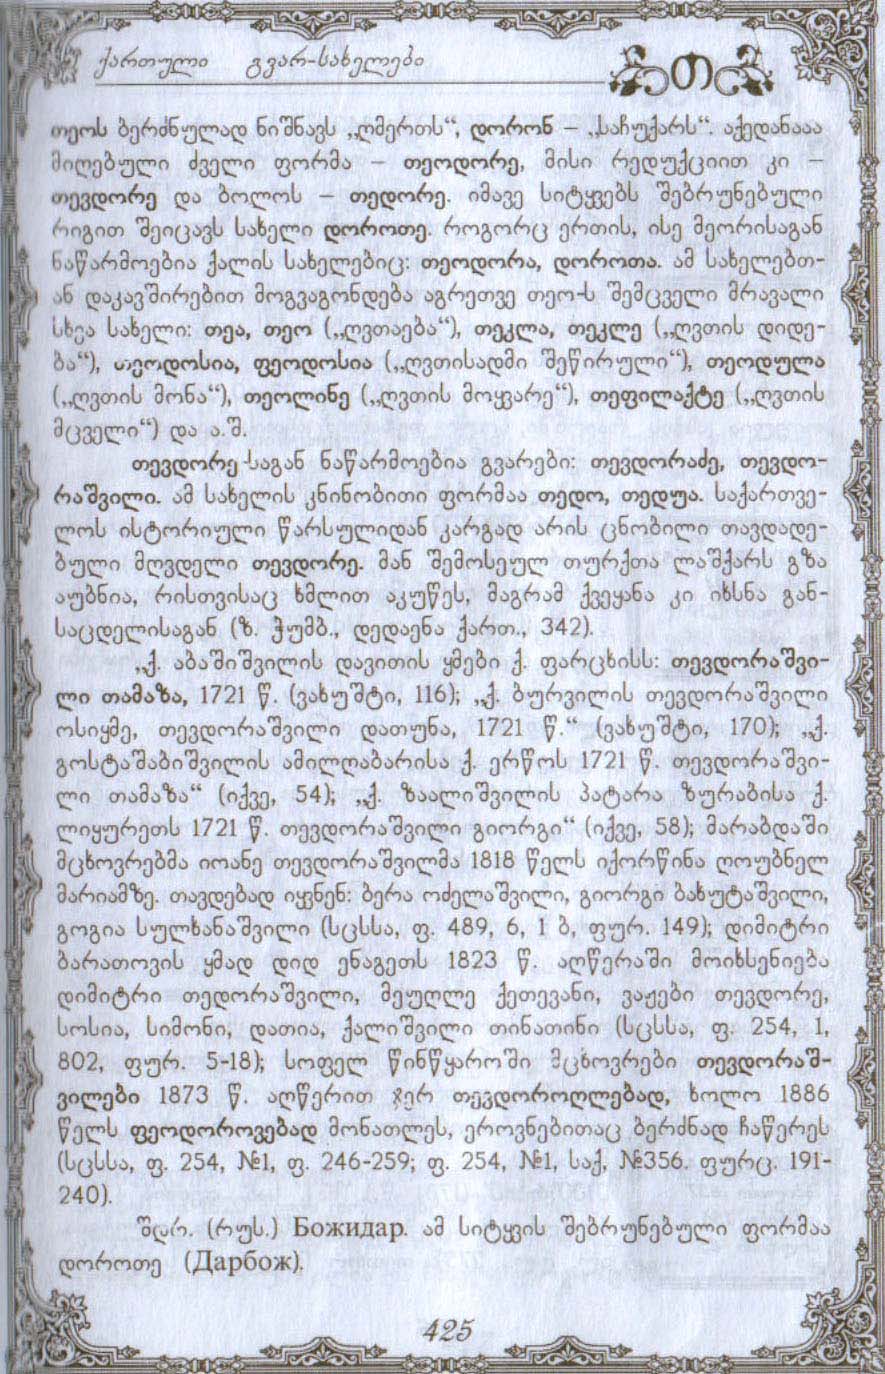 ქართული გვარ-სახელები
თ
თეოს ბერძნულად ნიშნავს „ღმერთს“, დორონ – „საჩუქარს“. აქედანააა
მიღებული ძველი ფორმა – თეოდორე, მისი რედუქციით კი –
თევდორე და ბოლოს – თედორე. იმავე სიტყვებს შებრუნებული
რიგით შეიცავს სახელი დოროთე. როგორც ერთის, ისე მეორისაგან
ნაწარმოებია ქალის სახელებიც: თეოდორა, დოროთა. ამ სახელებთ-
ან დაკავშირებით მოგვაგონდება აგრეთვე თეო-ს შემცველი მრავალი
სხვა სახელი: თეა, თეო („ღვთაება“), თეკლა, თეკლე („ღვთის დიდე-
ბა“), თეოდოსია, ფეოდოსია („ღვთისადმი შეწირული“), თეოდულა
(„ღვთის მონა“), თეოლინე („ღვთის მოყვარე“), თეფილაქტე („ღვთის
მცველი“) და ა.შ.
თევდორე-საგან ნაწარმოებია გვარები: თევდორაძე, თევდო-
რაშვილი. ამ სახელის კნინობითი ფორმაა თედო, თედუა. საქართვე-
ლოს ისტორიული წარსულიდან კარგად არის ცნობილი თავდადე-
ბული მღვდელი თევდორე. მან შემოსეულ თურქთა ლაშქარს გზა
აუბნია, რისთვისაც ხმლით აკუწეს, მაგრამ ქვეყანა კი იხსნა გან-
საცდელისაგან (ზ. ჭუმბ., დედაენა ქართ., 342).
„ქ. აბაშიშვილის დავითის ყმები ქ. ფარცხისს: თევდორაშვი-
ლი თამაზა, 1721 წ. (ვახუშტი, 116); „ქ. ბურვილის თევდორაშვილი
ოსიყმე, თევდორაშვილი დათუნა, 1721 წ.“ (ვახუშტი, 170); „ქ.
გოსტაშაბიშვილის ამილღაბარისა ქ. ერწოს 1721 წ. თევდორაშვი-
ლი თამაზა“ (იქვე, 54); „ქ. ზაალიშვილის პატარა ზურაბისა ქ.
ლიყურეთს 1721 წ. თევდორაშვილი გიორგი“ (იქვე, 58); მარაბდაში
მცხოვრებმა იოანე თევდორაშვილმა 1818 წელს იქორწინა ღოუბნელ
მარიამზე. თავდებად იყვნენ: ბერა ოძელაშვილი, გიორგი ბახუტაშვილი,
გოგია სულხანაშვილი (სცსსა, ფ. 489, 6, 1 ბ, ფურ. 149); დიმიტრი
ბარათოვის ყმად დიდ ენაგეთს 1823 წ. აღწერაში მოიხსენიება
დიმიტრი თედორაშვილი, მეუღლე ქეთევანი, ვაჟები თევდორე,
სოსია, სიმონი, დათია, ქალიშვილი თინათინი (სცსსა, ფ. 254, 1,
802, ფურ. 5-18); სოფელ წინწყაროში მცხოვრები თევდორაშ-
ვილები 1873 წ. აღწერით ჯერ თევდოროღლებად, ხოლო 1886
წელს ფეოდოროვებად მონათლეს, ეროვნებითაც ბერძნად ჩაწერეს
(სცსსა, ფ. 254, №1, ფ. 246-259; ფ. 254, №1, საქ, №356. ფურც. 191-
240).
შდრ. (რუს.) Божидар. ამ სიტყვის შებრუნებული ფორმაა
დოროთე (Дарбож).
425